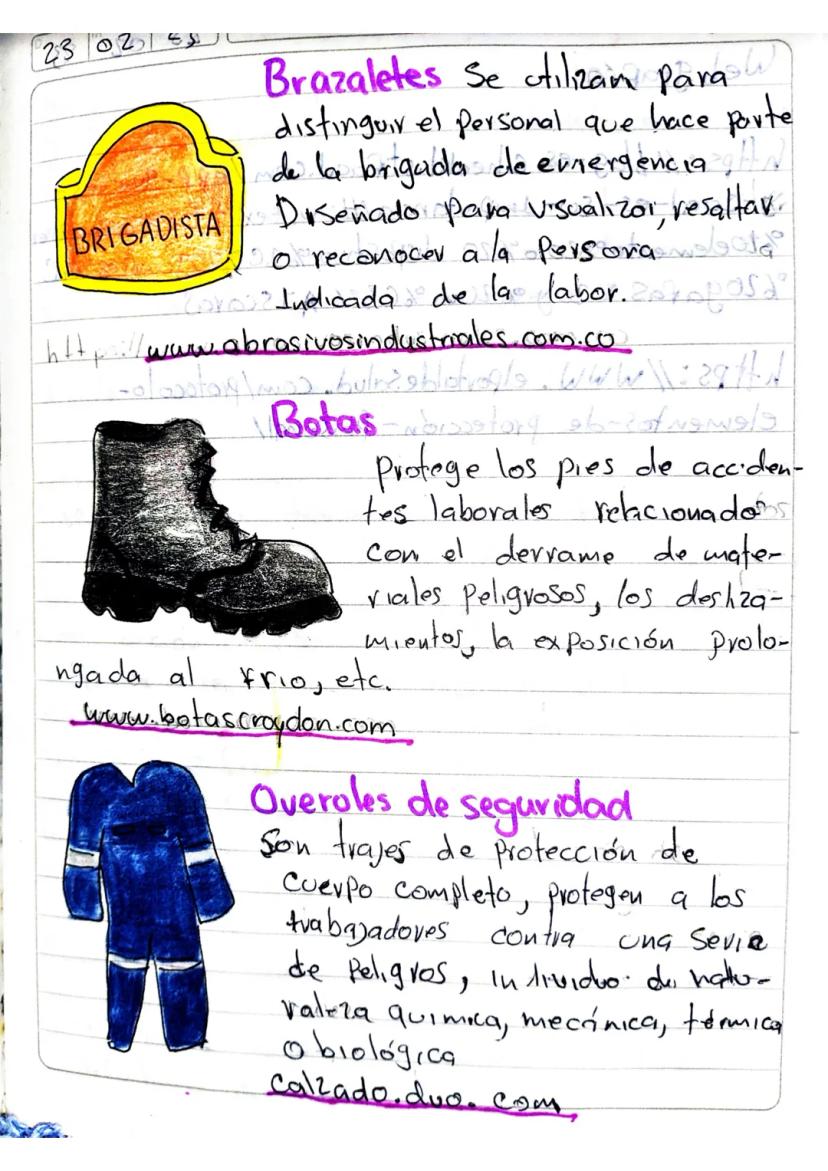 23 02
Brazaletes Se utilizan para
distinguir el personal que hace parte
de la brigada de emergencia
BRIGADISTA
Diseñado para visualizar, resaltar
o reconocer a la persona
Indicada de la labor.
http://www.abrasivosindustriales.com.co
Botas
Protege los pies de acciden-
tes laborales relacionados
con el derrame de mate-
riales peligrosos, los desliza-
mientos, la exposición prolo-
ngada al frio, etc.
www.botascroydon.com
Overoles de seguridad
Son trajes de protección de
cuerpo completo, protegen a los
trabajadores contra una serie
de peligros, individuo de natu-
raleza quimica, mecánica, térmica
o biológica
calzado.duo.com